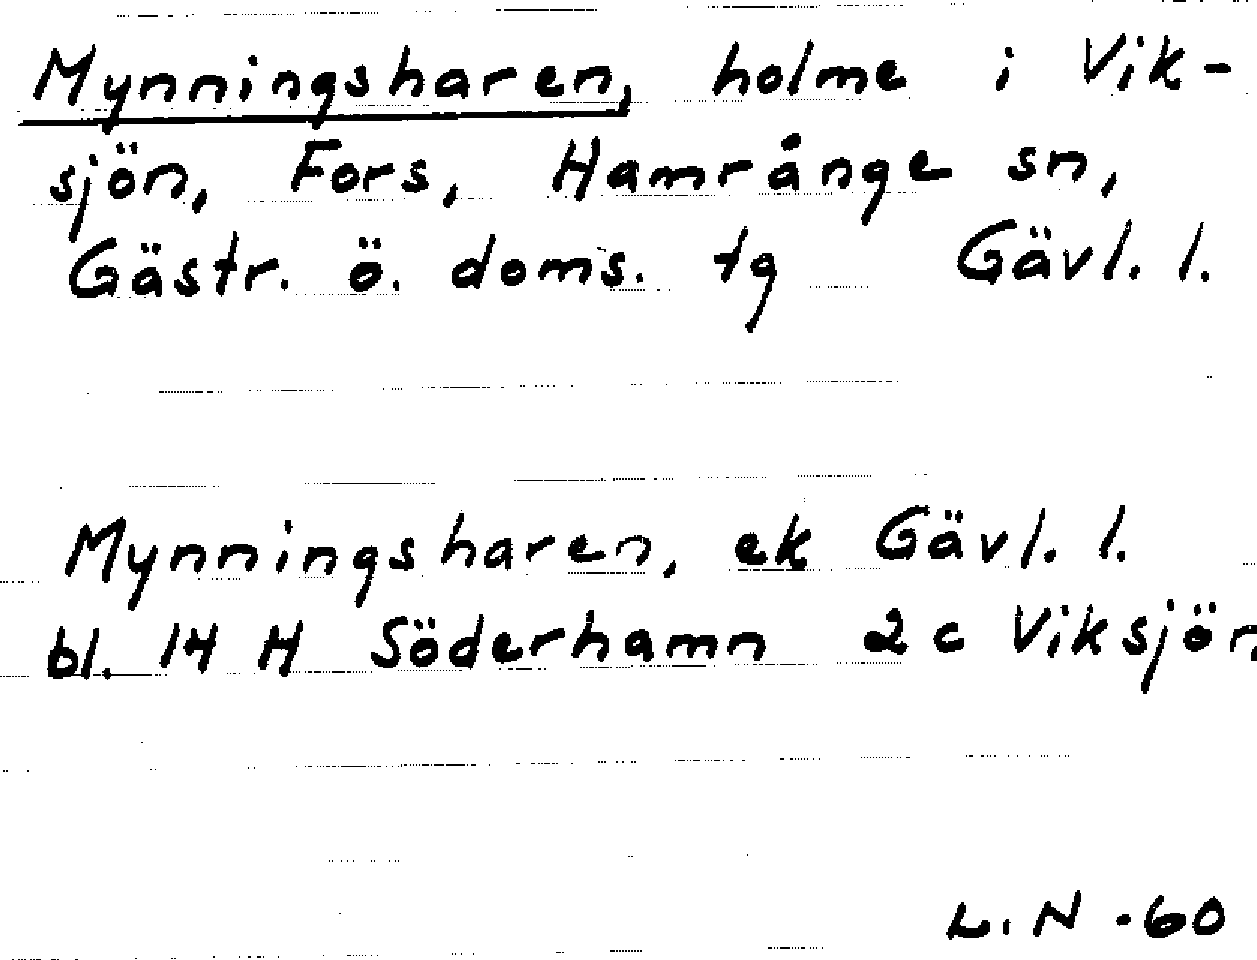 Mynningsharen, holme i Vik-
sjön, Fors, Hamrånge sn,
Gästr. ö. doms. tg Gävl. l.
Mynningsharen, ek Gävl. l.
bl. 14 H Söderhamn 2 c Viksjön
L. N -60